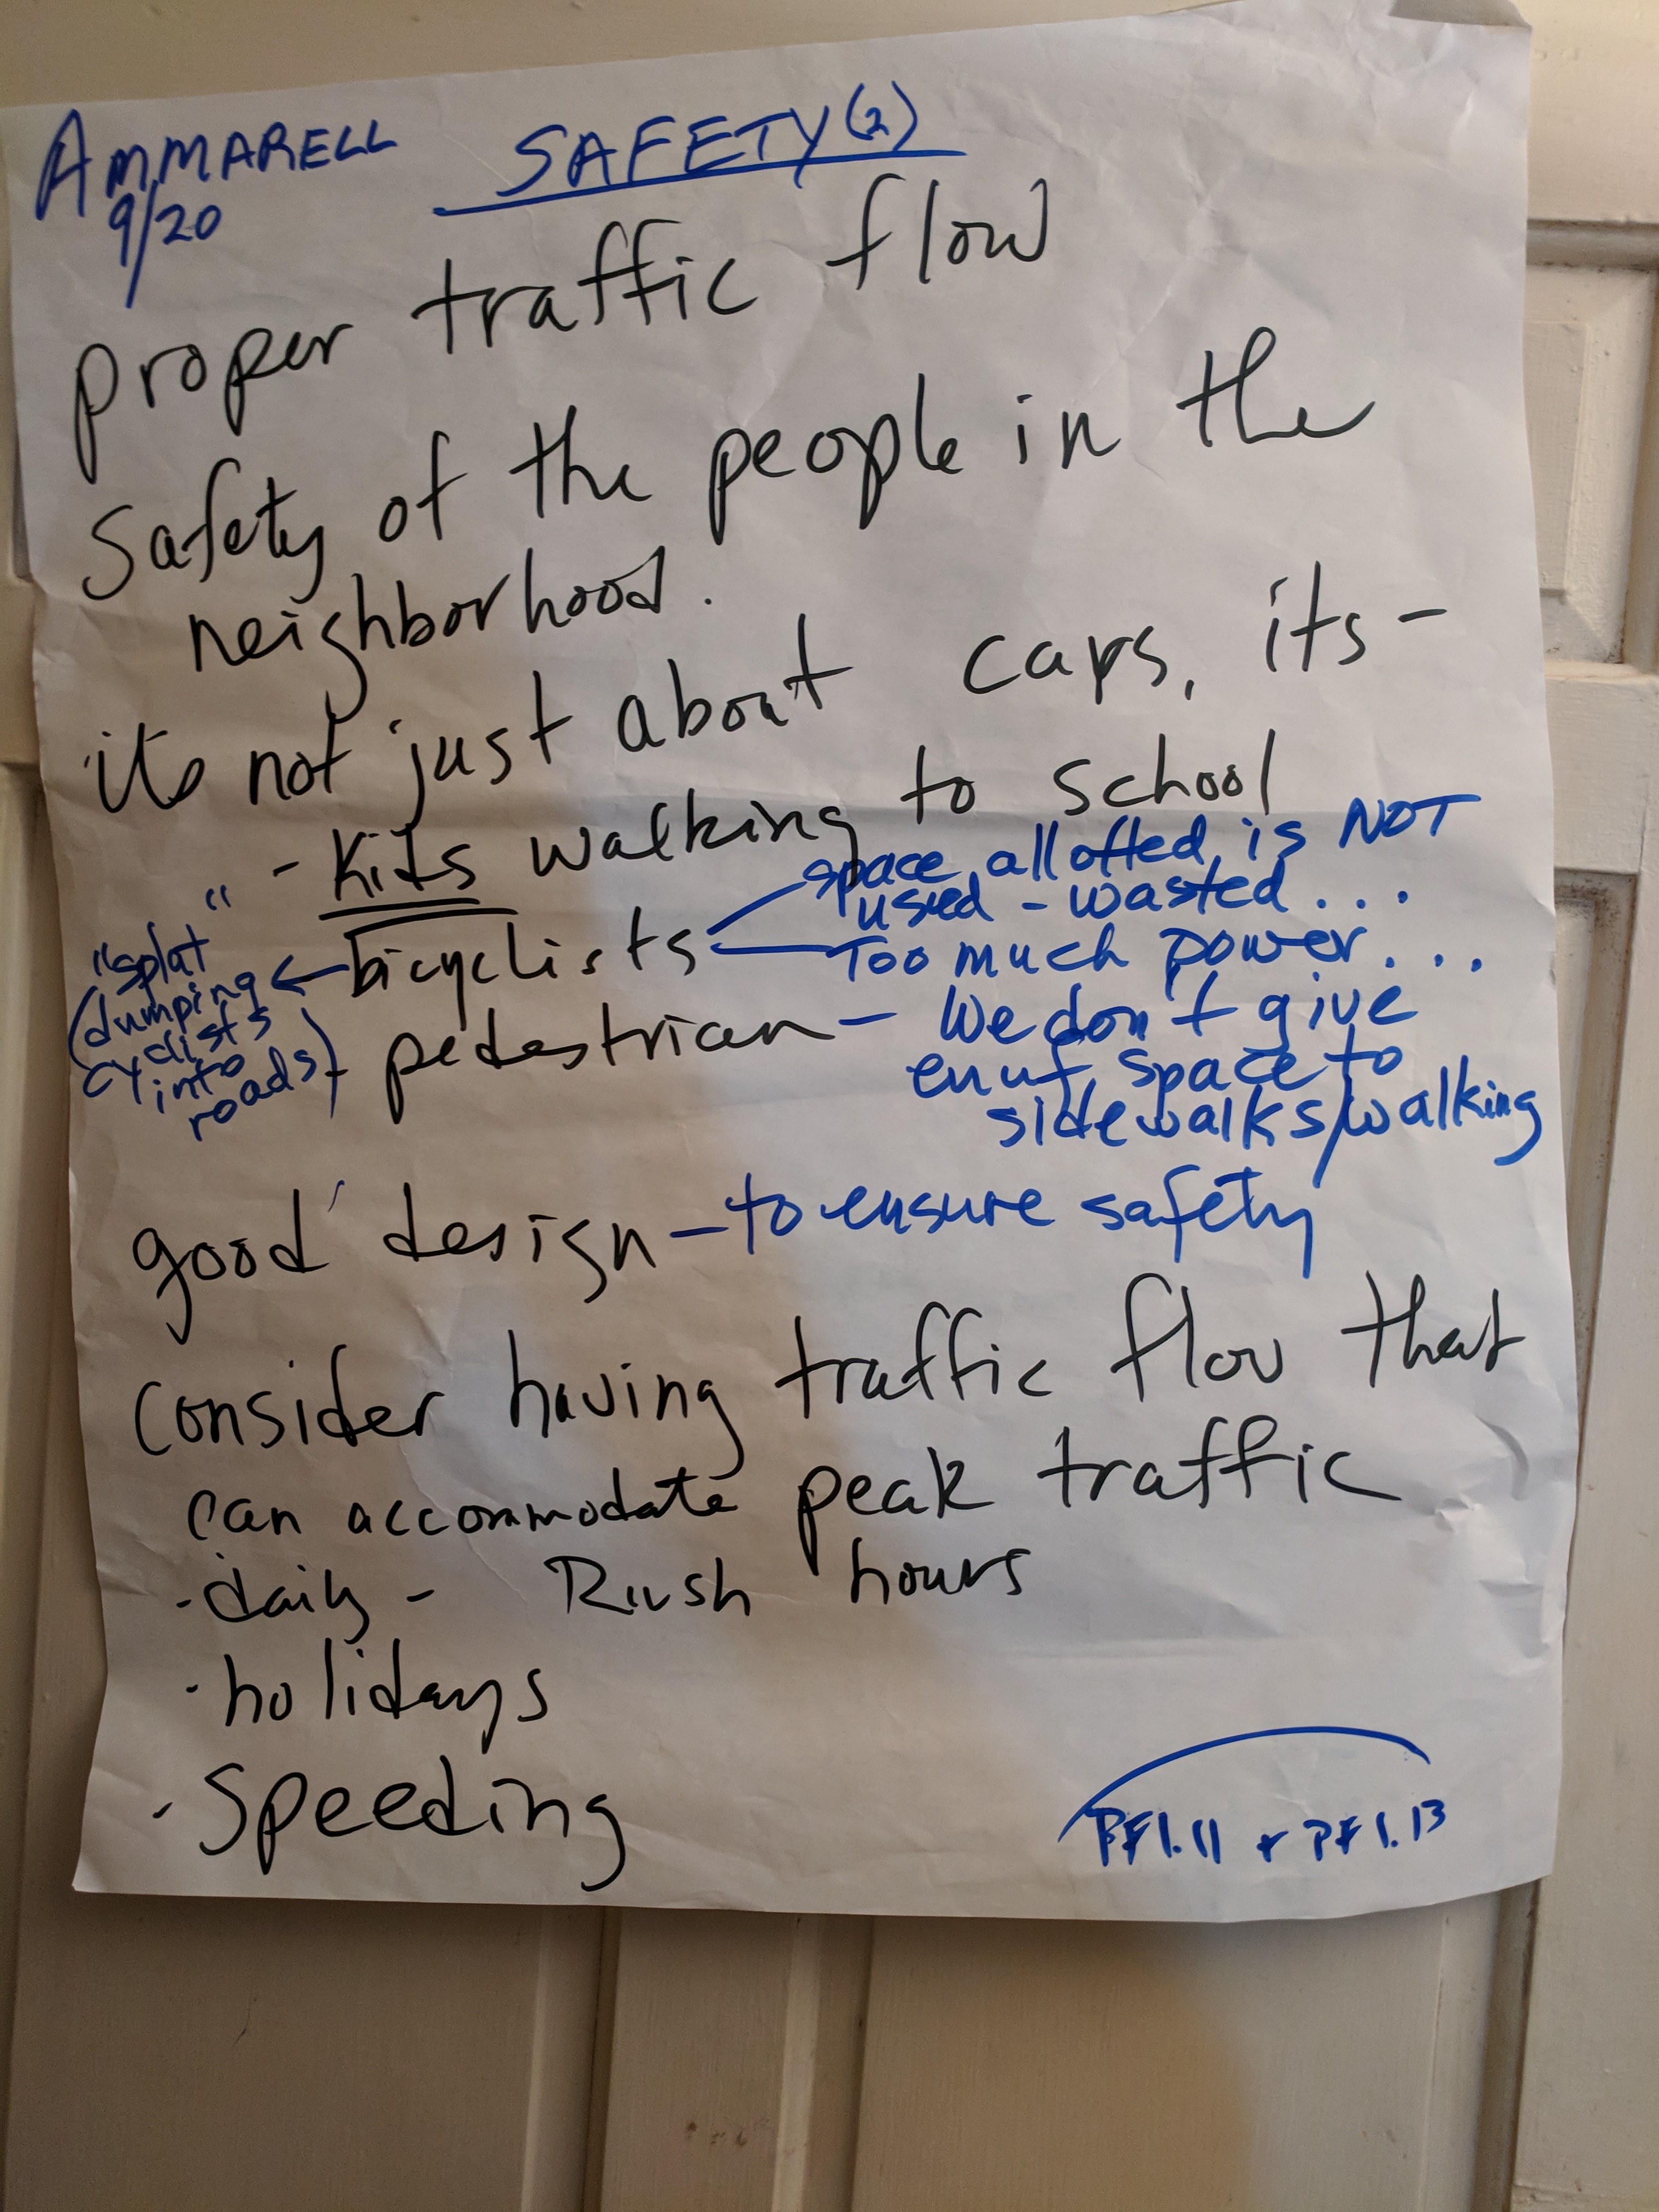 AMMARELL SAFETY (2)
9/20
proper traffic flow
Safety of the people in the
neighborhood.
its not just about cars, its -
- Kids walking to school
space allotted is NOT
used - wasted...
bicyclists
Too much power....
"splat"
(dumping
cyclists
into
roads)
pedestrian - We don't give
enuf space to
sidewalks/walking
good design - to ensure safety
Consider having traffic flow that
can accommodate peak traffic
· daily - Rush hours
· holidays
· Speeding
PF1.11 + PF1.13